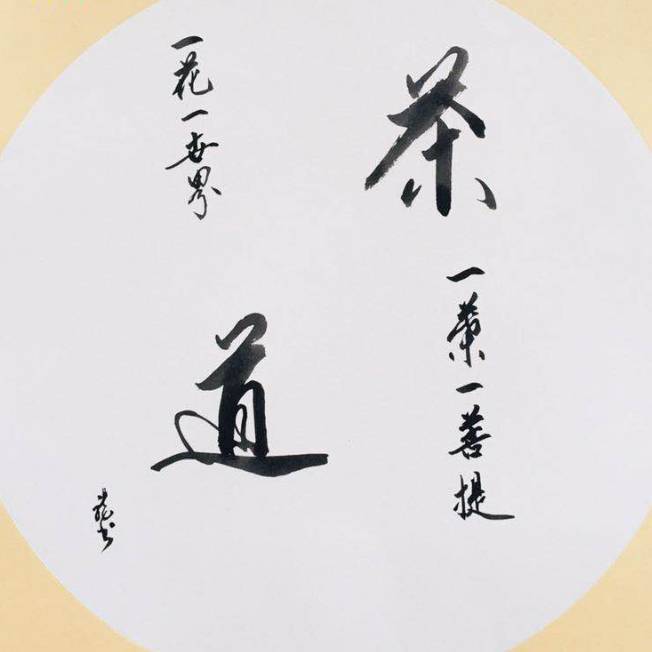 茶
一葉一菩提
一花一世界
道